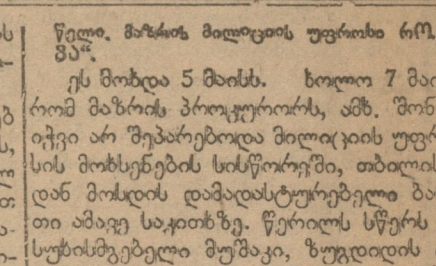 წელი. მაზრის მილიციის უფროსი
ვა“.
ეს მოხდა 5 მაისს. ხოლო 7
რომ მაზრის პროკურორს, ამხ.
იჭვი არ შეპარებოდა მილიციის
სის მოხსენების სისწორეში,
დან მოსდის დამადასტურებელი
თი ამავე საკითხზე. წერილს სწერს
მუშაკი, ზუგდიდის